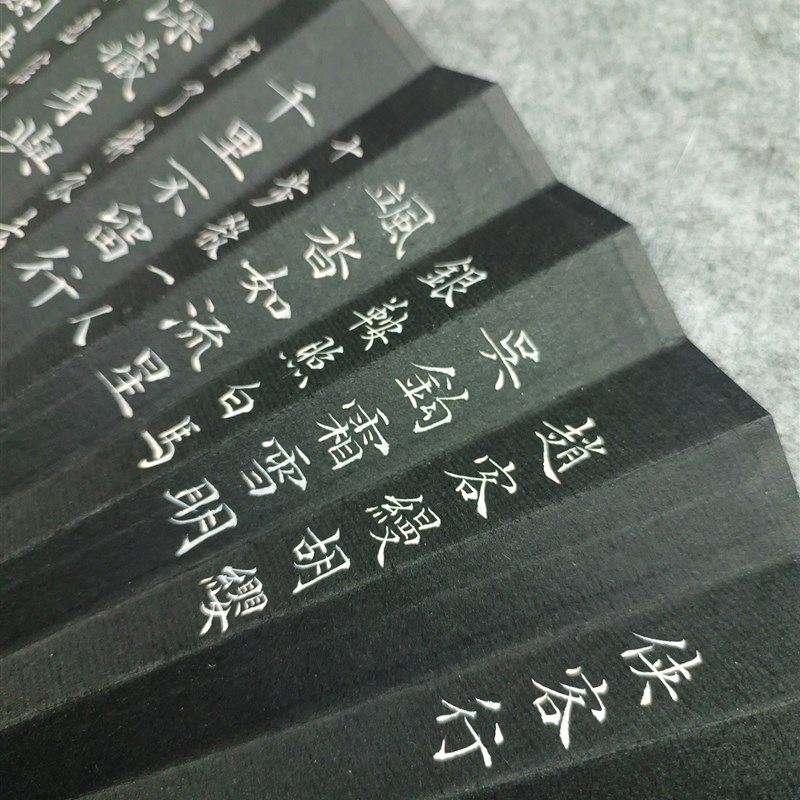 侠客行
趙客縵胡纓
吳鉤霜雪明
銀鞍照白馬
颯沓如流星
十步殺一人
千里不留行
事了拂衣去
深藏身與